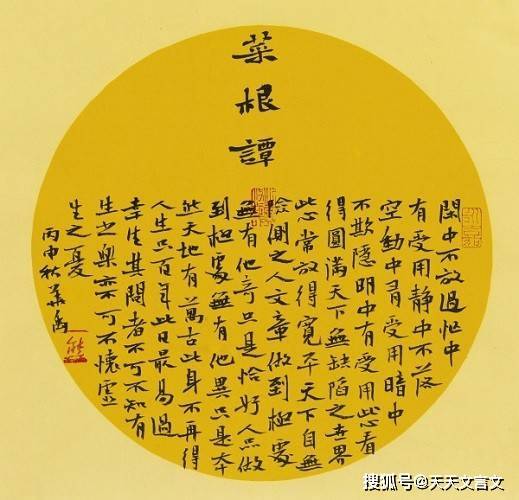 菜根譚
閑中不放過忙中
有受用静中不落
空動中有受用暗中
不欺隱明中有受用此心看
得圓滿天下無缺陷之世界
此心常放得寬平天下自無
險側之人文章做到極處
無有他奇只是恰好人品做
到極處無有他異只是本
然天地有萬古此身不再得
人生只百年此日最易過
幸生其間者不可不知有
生之樂亦不可不懷虛
生之憂
丙申秋
搜狐号@天天文言文